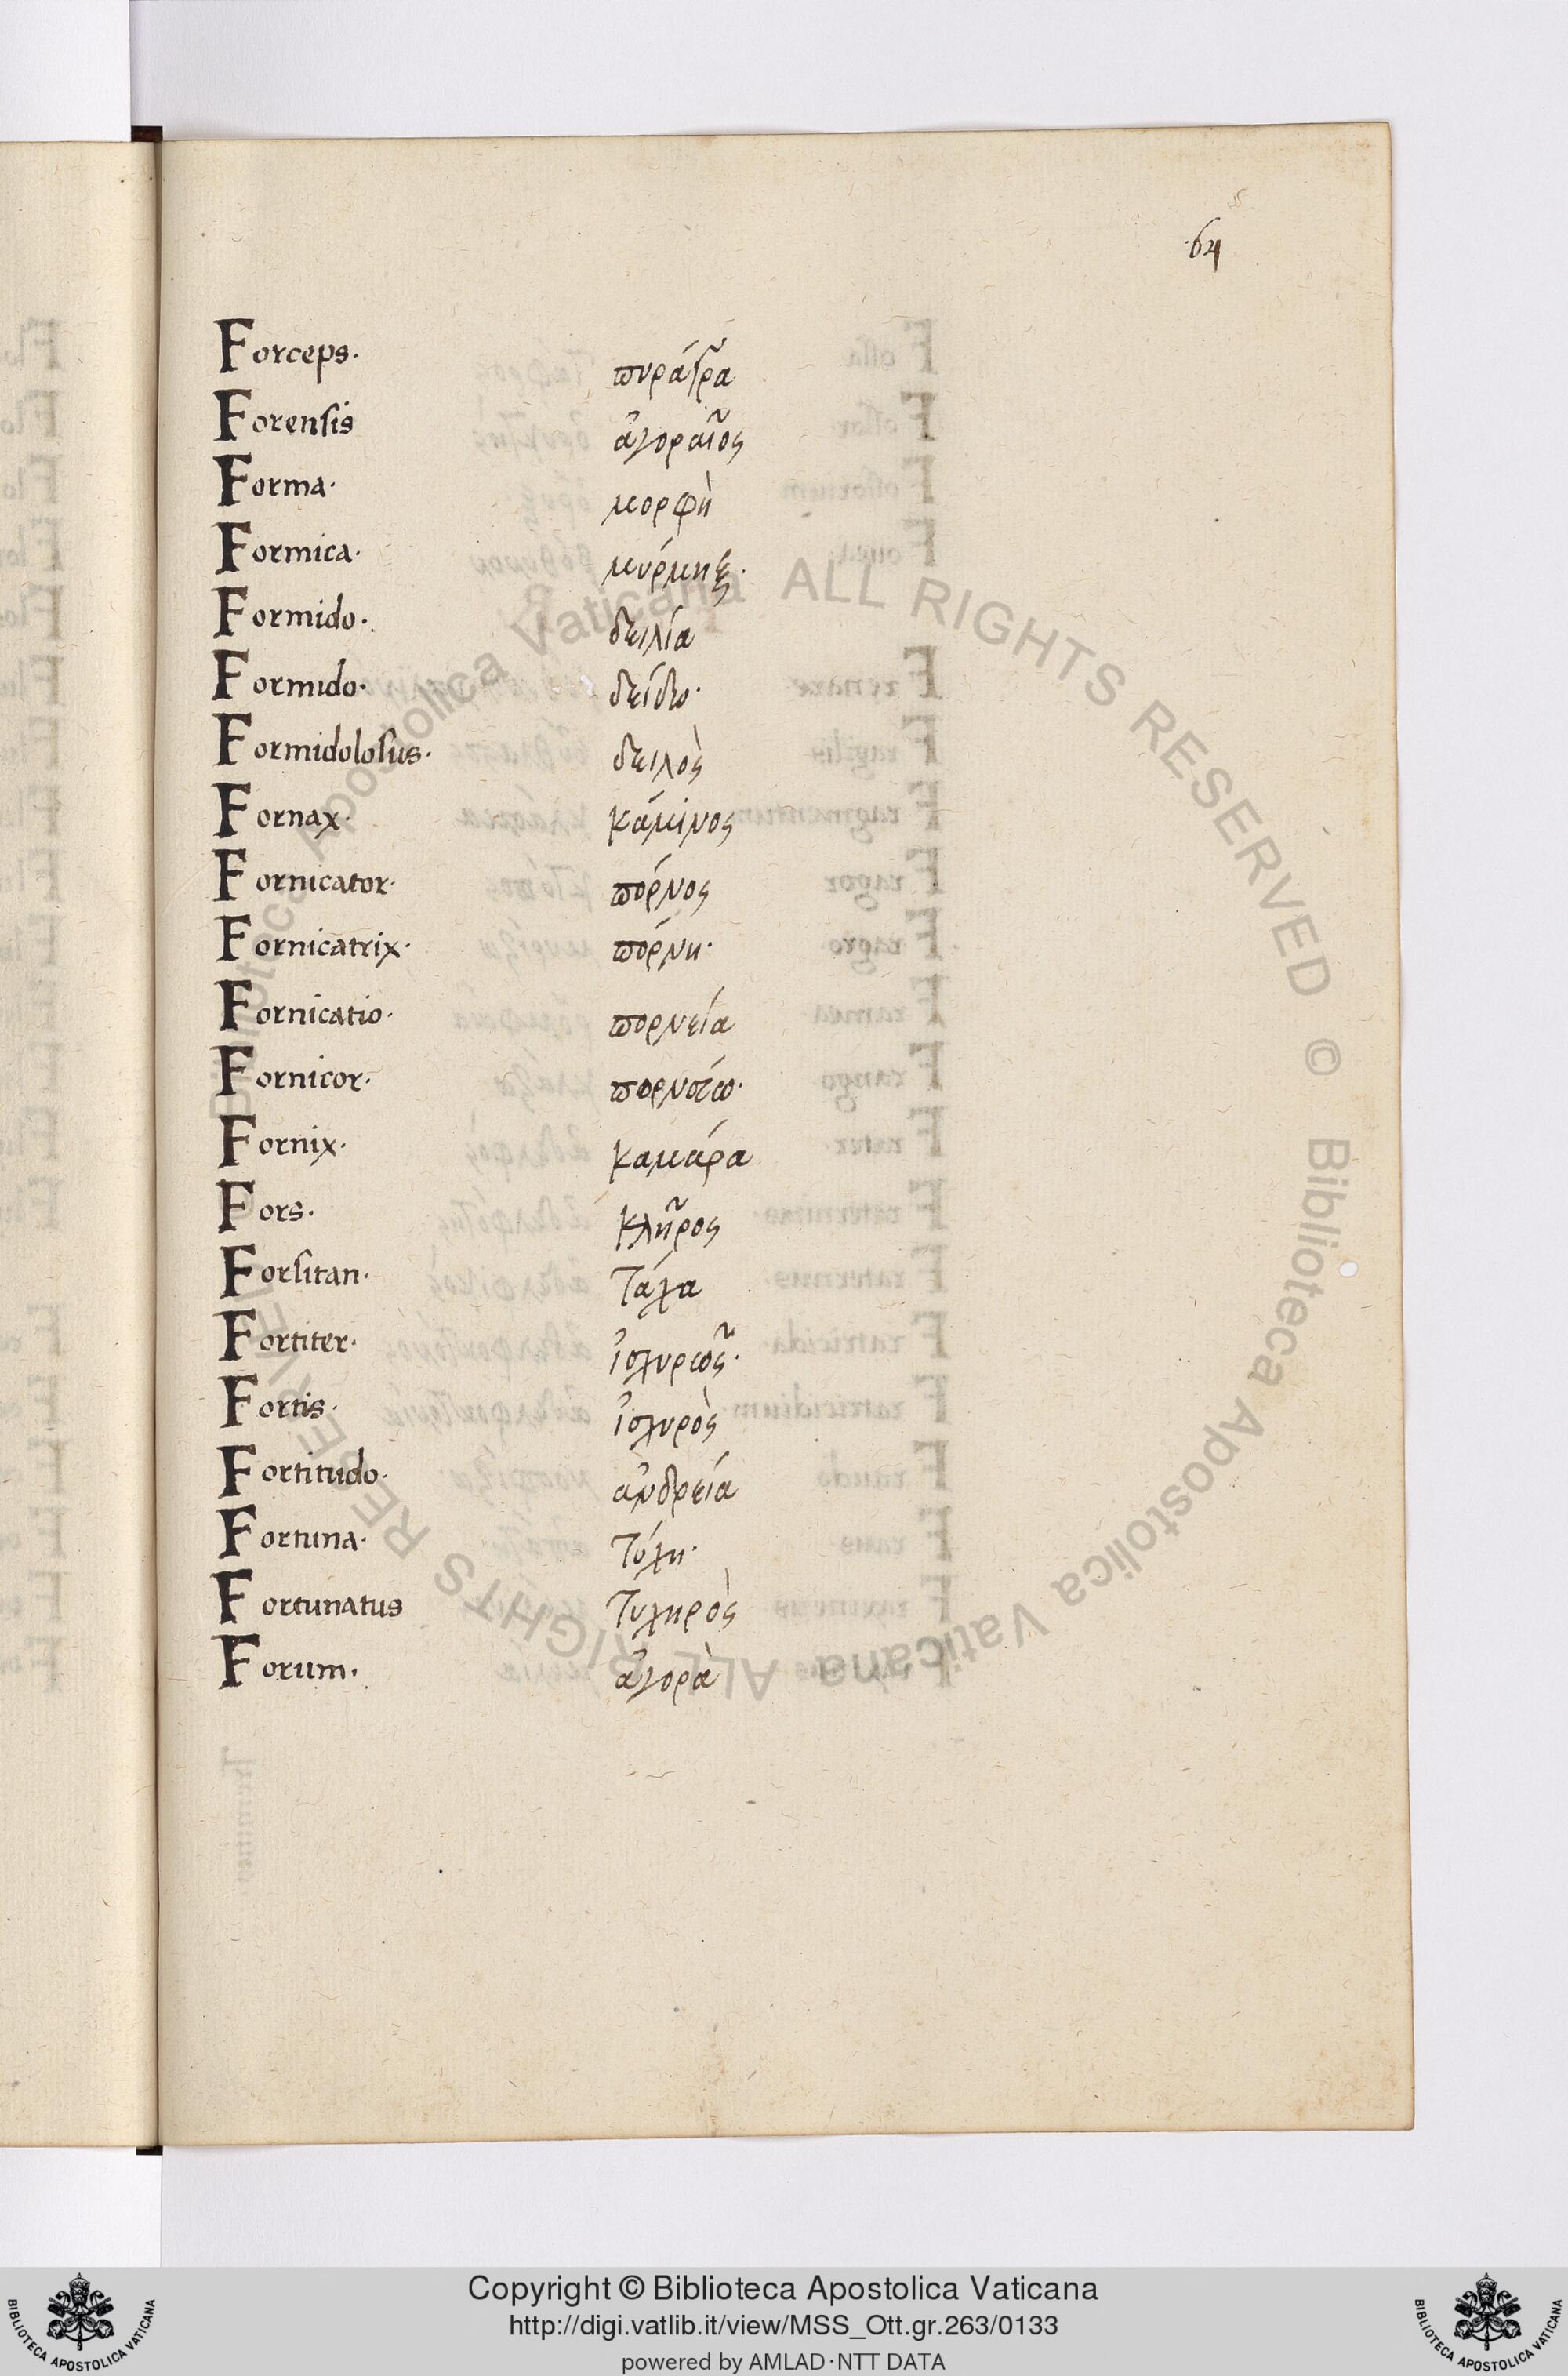 64
Forceps· πυράγρα
Forensis ἀγοραῖος
Forma· μορφὴ
Formica· μύρμηξ·
Formido· δειλία
Formido· δείδω·
Formidolosus· δειλὸς
Fornax· κάμινος
Fornicator· πόρνος
Fornicatrix· πόρνη·
Fornicatio· πορνεία
Fornicor· πορνεύω·
Fornix· καμάρα
Fors· κλῆρος
Forsitan· τάχα
Fortiter· ἰσχυρῶς·
Fortis· ἰσχυρὸς
Fortitudo· ἀνδρεία
Fortuna· τύχη·
Fortunatus τυχηρὸς
Forum· ἀγορὰ
Biblioteca Apostolica Vaticana ALL RIGHTS RESERVED © Biblioteca Apostolica Vaticana ALL RIGHTS RESERVED
Copyright © Biblioteca Apostolica Vaticana
http://digi.vatlib.it/view/MSS_Ott.gr.263/0133
powered by AMLAD·NTT DATA
BIBLIOTECA APOSTOLICA VATICANA
BIBLIOTECA APOSTOLICA VATICANA